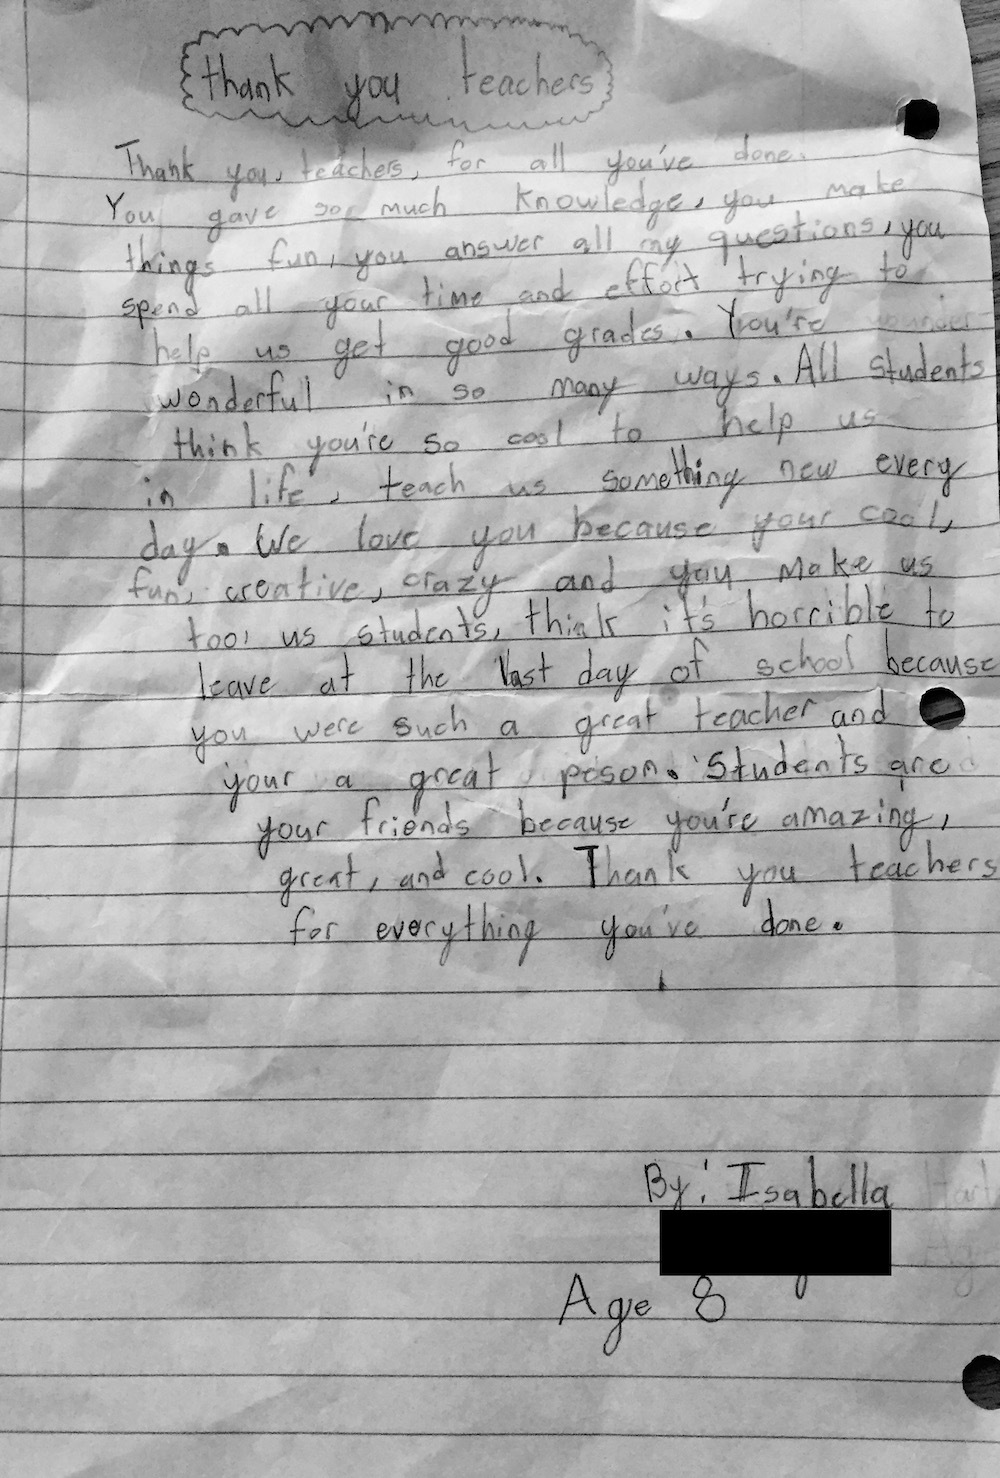 thank you teachers
Thank you, teachers, for all you've done.
You gave so much knowledge, you make
things fun, you answer all my questions, you
spend all your time and effort trying to
help us get good grades. You're wounder
wonderful in so many ways. All students
think you're so cool to help us
in life, teach us something new every
day. We love you because your cool,
fun, creative, crazy and you make us
too, us students, think it's horrible to
leave at the last day of school because
you were such a great teacher and
your a great peson. Students are
your friends because you're amazing,
great, and cool. Thank you teachers
for everything you've done.
By: Isabella
Age 8